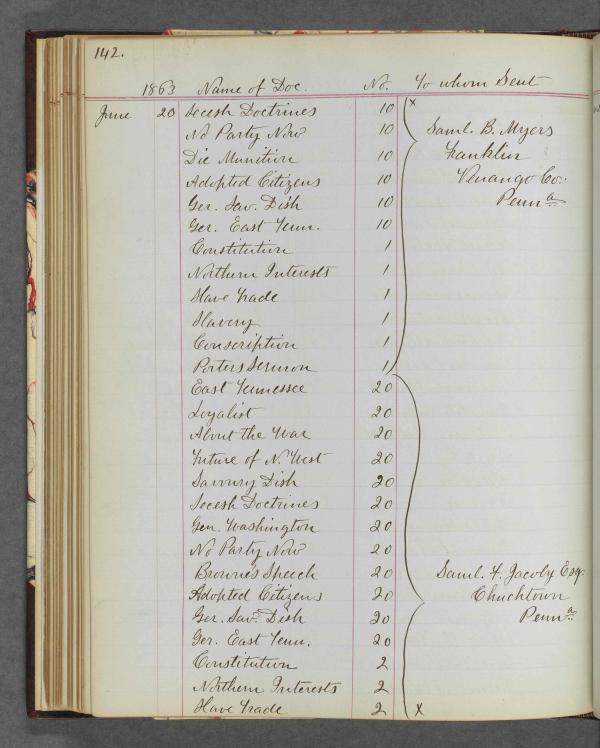 142.
1863 Name of Doc. No. To whom Sent
June 20 Secesh Doctrines 10 x
No Party Now 10 Saml. B. Myers
Die Munition 10 Franklin
Adopted Citizens 10 Venango Co.
Ger. Sav. Dish 10 Penna
Ger. East Tenn. 10
Constitution 1
Northern Interests 1
Slave Trade 1
Slavery 1
Conscription 1
Porters Sermon 1
East Tennessee 20
Loyalist 20
About the War 20
Future of N. West 20
Savoury Dish 20
Secesh Doctrines 20
Gen. Washington 20
No Party Now 20
Browne's Speech 20 Saml. F. Jacoby Esq.
Adopted Citizens 20 Chuchtown
Ger. Sav. Dish 20 Penna
Ger. East Tenn. 20
Constitution 2
Northern Interests 2
Slave Trade 2 x